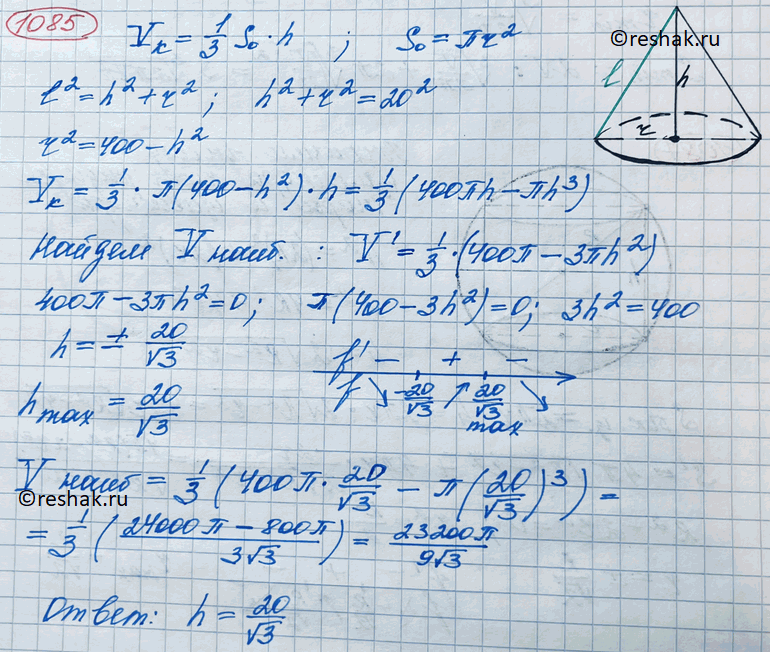 1085 V_k = 1/3 S₀ · h ; S₀ = πr²
©reshak.ru
l² = h² + r² ; h² + r² = 20²
l h r
r² = 400 − h²
V_k = 1/3 · π(400 − h²) · h = 1/3 (400πh − πh³)
Найдем V наиб. : V' = 1/3 · (400π − 3πh²)
400π − 3πh² = 0; π(400 − 3h²) = 0; 3h² = 400
h = ± 20/√3
f' − + −
f ↘ −20/√3 ↗ 20/√3 ↘
max
h max = 20/√3
V наиб = 1/3 (400π · 20/√3 − π(20/√3)³) =
©reshak.ru
= 1/3 ((24000π − 800π)/(3√3)) = 23200π/(9√3)
Ответ: h = 20/√3